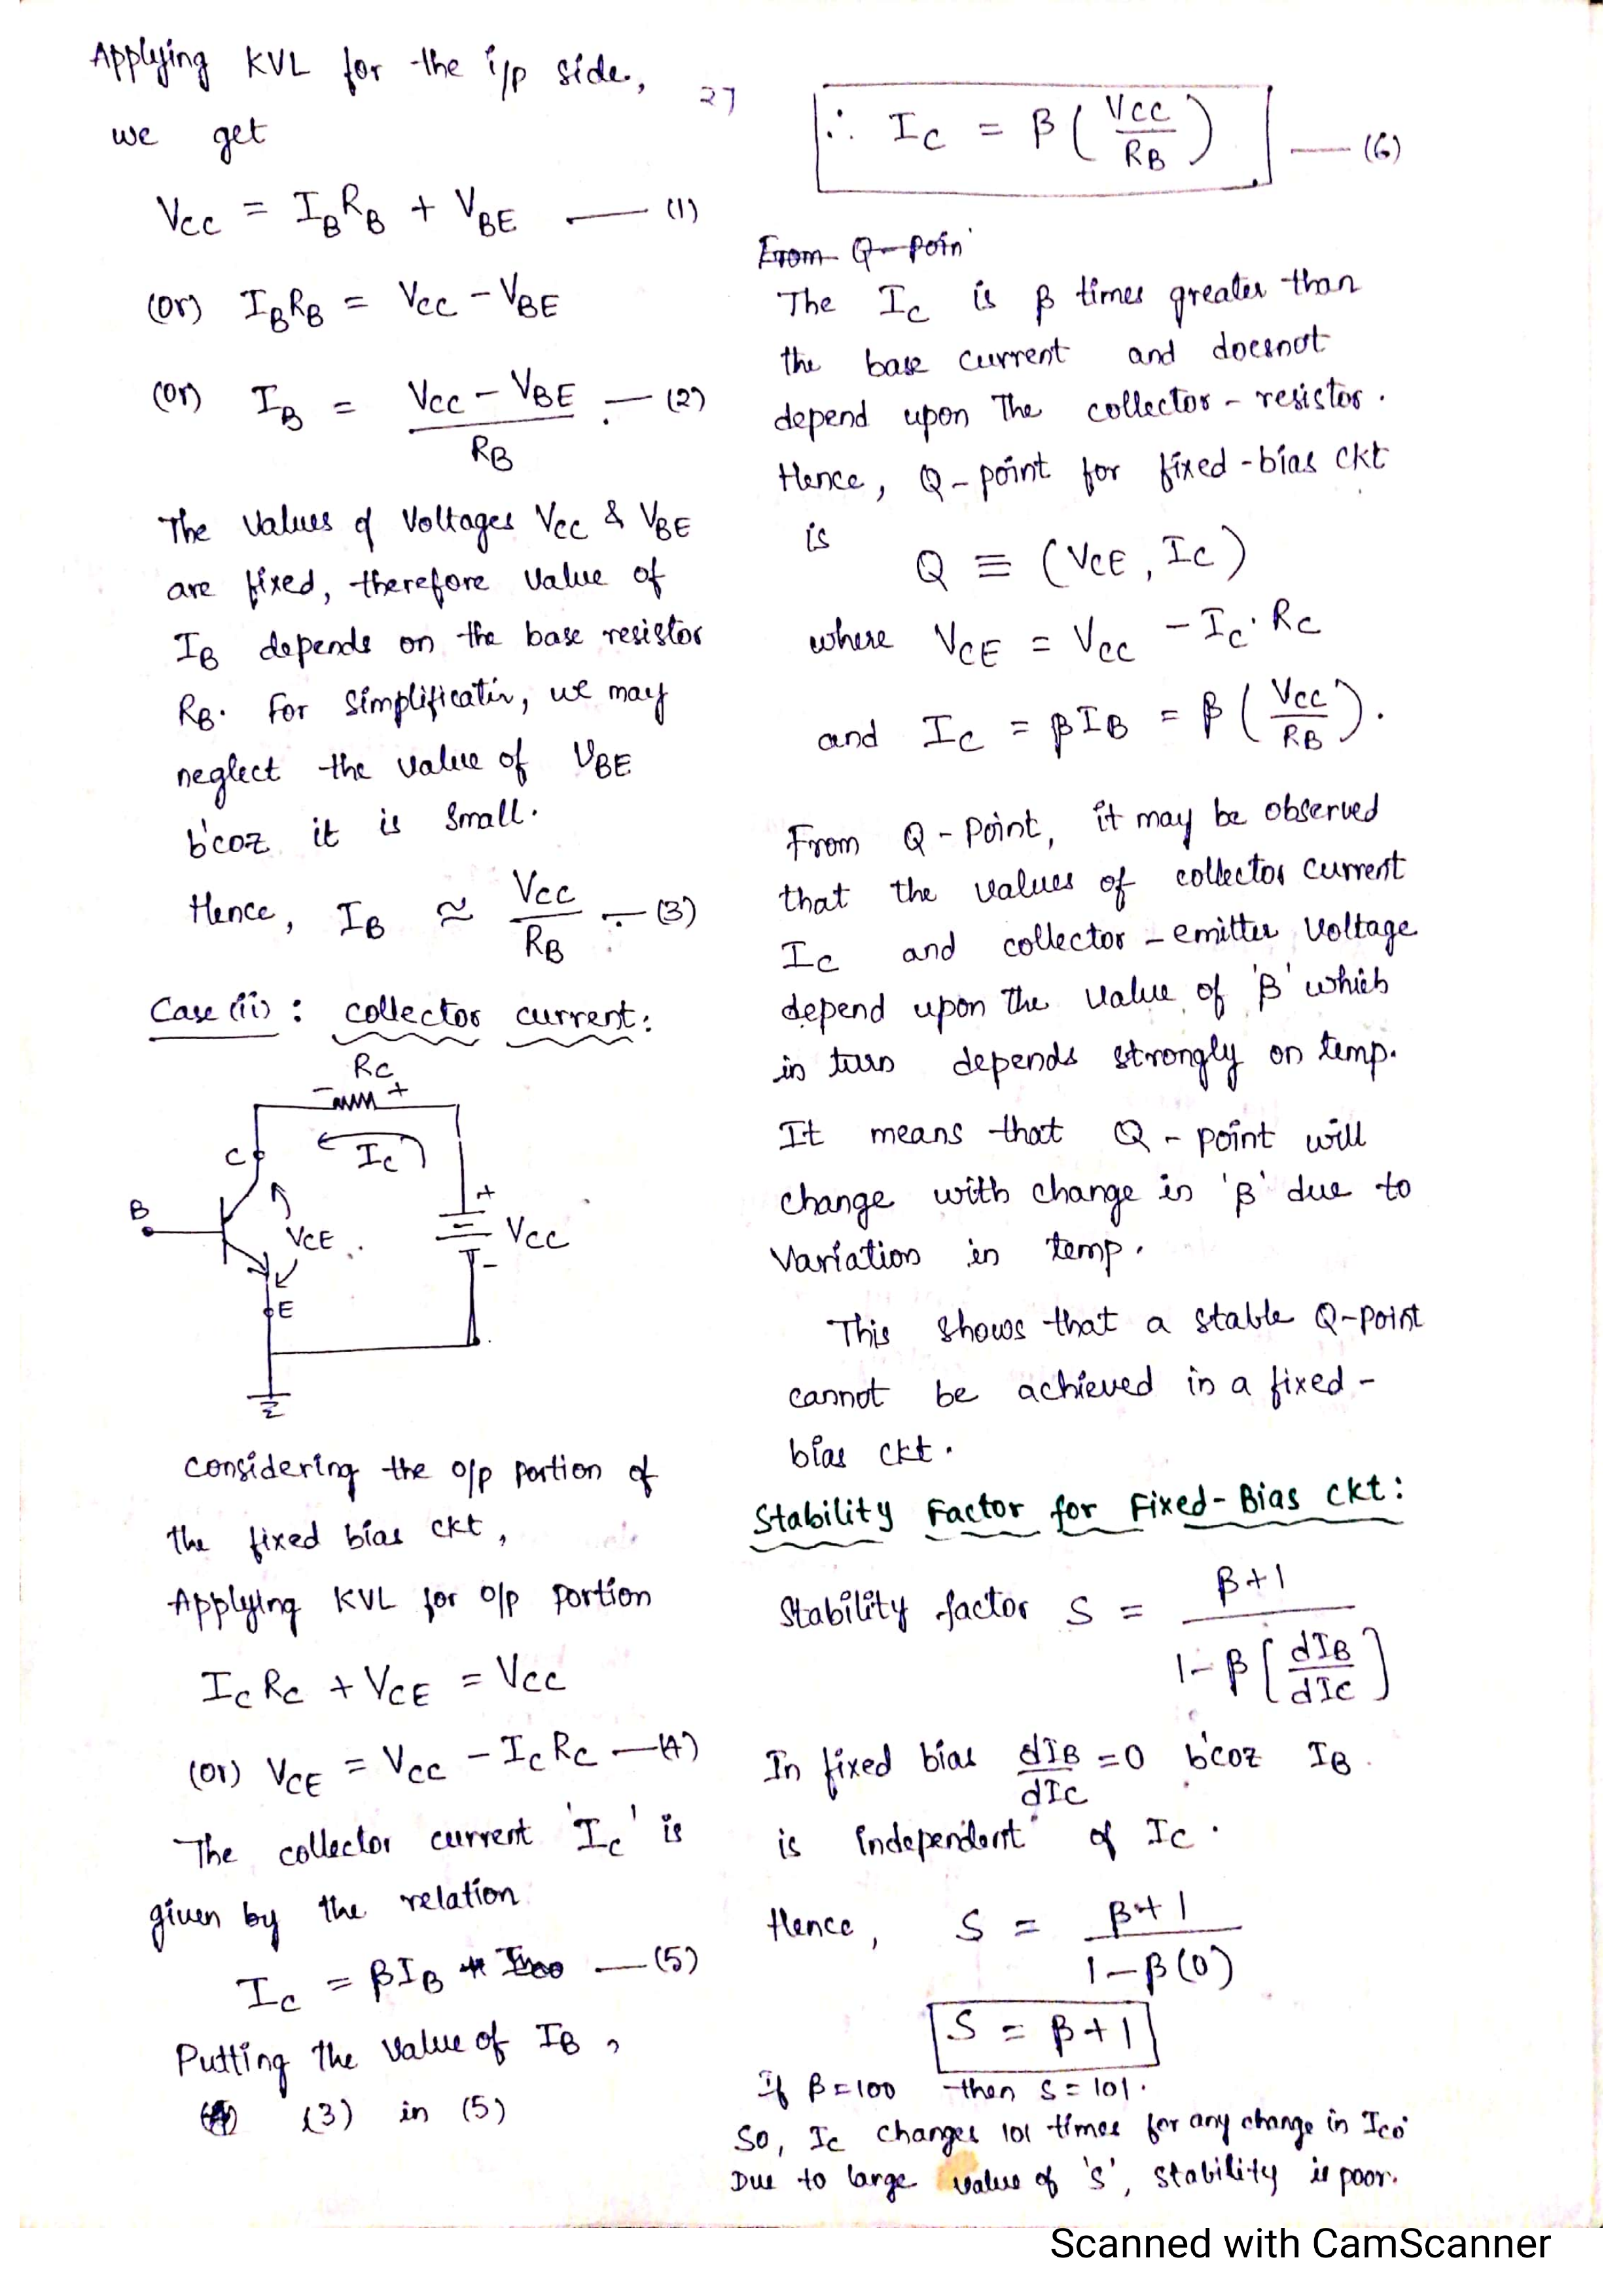 Applying KVL for the i/p side,
we get
Vcc = I_B R_B + V_BE — (1)
(or) I_B R_B = Vcc - V_BE
(or) I_B = (Vcc - V_BE) / R_B — (2)
The values of Voltages Vcc & V_BE
are fixed, therefore value of
I_B depends on the base resistor
R_B. For Simplificatin, we may
neglect the value of V_BE
b'coz it is Small.
Hence, I_B ≈ Vcc / R_B — (3)
Case (ii) : collector current:
Rc
- +
C
Ic
B
VCE
+
Vcc
-
E
Considering the o/p portion of
the fixed bias ckt,
Applying KVL for o/p portion
Ic Rc + VCE = Vcc
(or) VCE = Vcc - Ic Rc — (4)
The collector current 'Ic' is
given by the relation
Ic = βI_B — (5)
Putting the value of I_B,
(3) in (5)
27
∴ Ic = β (Vcc / R_B) — (6)
From Q-poin
The Ic is β times greater than
the base current and doesnot
depend upon The collector - resistor.
Hence, Q - point for fixed - bias ckt
is
Q ≡ (VCE, Ic)
where VCE = Vcc - Ic. Rc
and Ic = βI_B = β (Vcc / R_B).
From Q - Point, it may be observed
that the values of collector current
Ic and collector - emitter Voltage
depend upon the value of 'β' which
in turn depends strongly on temp.
It means that Q - point will
change with change in 'β' due to
Variation in temp.
This shows that a stable Q-point
cannot be achieved in a fixed -
bias ckt.
Stability Factor for Fixed-Bias ckt:
Stability factor S = (β+1) / (1-β[dI_B / dIc])
In fixed bias dI_B / dIc = 0 b'coz I_B
is independent of Ic.
Hence, S = (β+1) / (1-β(0))
S = β+1
If β=100 then S=101.
So, Ic changes 101 times for any change in Ico.
Due to large value of 'S', stability is poor.
Scanned with CamScanner